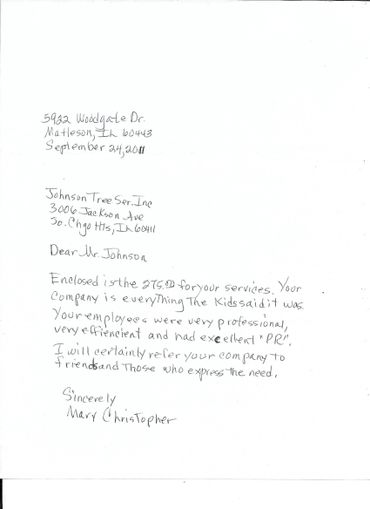 5922 Woodgate Dr.
Matteson, IL 60443
September 24, 2011
Johnson Tree Ser. Inc
3006 Jackson Ave
So. Chgo Hts, IL 60411
Dear Mr. Johnson
Enclosed is the 275.00 for your services. Your
Company is everything The Kids said it was.
Your employees were very professional,
very effiencient and had excellent "PR".
I will certainly refer your company to
friends and Those who express the need.
Sincerely
Mary Christopher